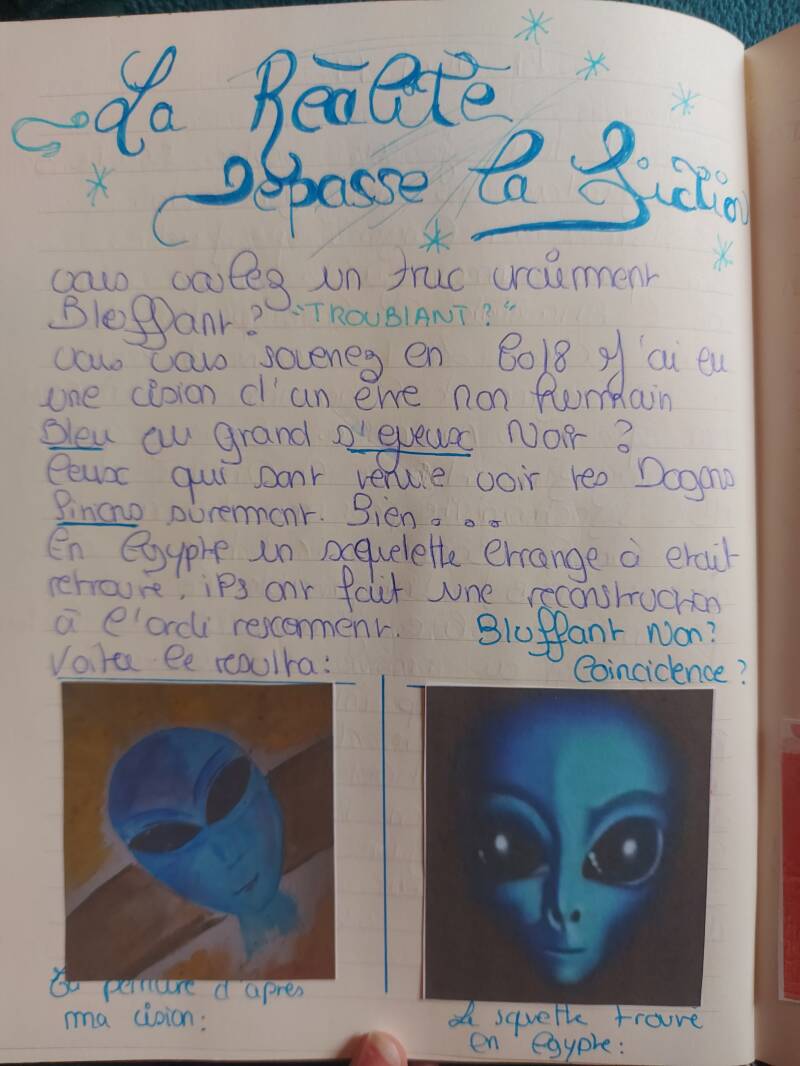 La Réalité
Dépasse la Fiction
vous voulez un truc vraiment
Bleffant? "TROUBLANT?"
vous vous sovenez en 2018 j'ai eu
une vision d'un être non humain
Bleu au grand s'yeux Noir?
Ceux qui sont venue voir les Dogons
sûrement. Bien...
En egypte un squelette etrange à etait
retrouvé, ils ont fait une reconstruction
à l'ordi rescemment. Bluffant Non?
Voila le resulta: Coincidence?
peinture d'après
ma vision:
Le squette trouvé
en egypte: